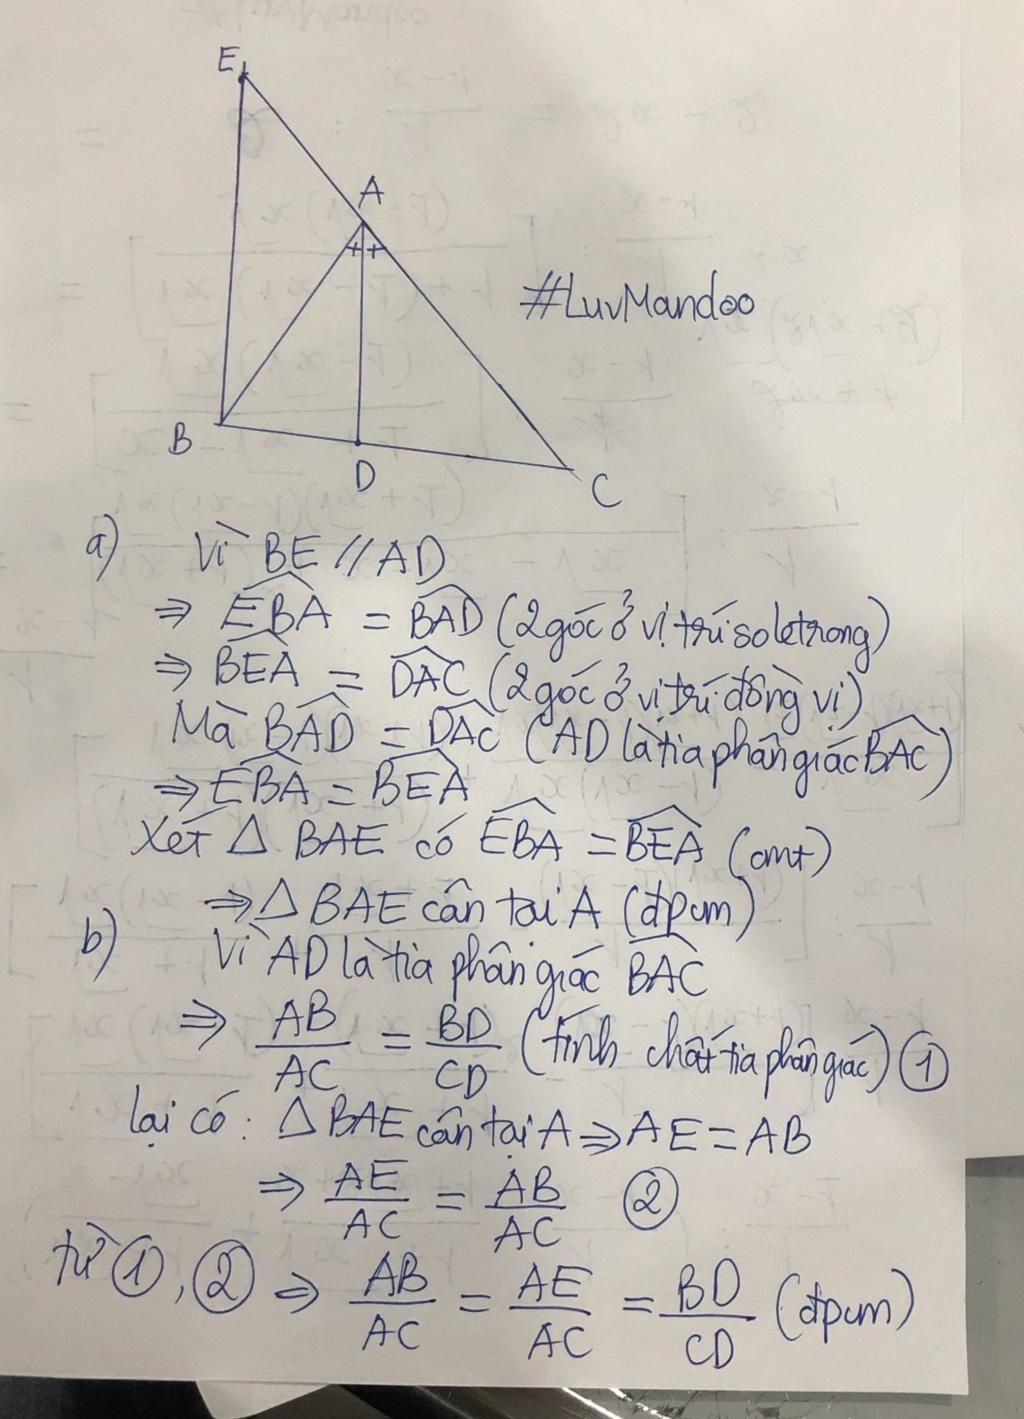 E
A
#LuvMandoo
B
D
C
a) Vì BE // AD
⇒ \widehat{EBA} = \widehat{BAD} (2 góc ở vị trí so le trong)
⇒ \widehat{BEA} = \widehat{DAC} (2 góc ở vị trí đồng vị)
Mà \widehat{BAD} = \widehat{DAC} (AD là tia phân giác \widehat{BAC})
⇒ \widehat{EBA} = \widehat{BEA}
Xét Δ BAE có \widehat{EBA} = \widehat{BEA} (cmt)
⇒ Δ BAE cân tại A (đpcm)
b) Vì AD là tia phân giác \widehat{BAC}
⇒ \frac{AB}{AC} = \frac{BD}{CD} (tính chất tia phân giác) ①
lại có: Δ BAE cân tại A ⇒ AE = AB
⇒ \frac{AE}{AC} = \frac{AB}{AC} ②
từ ①, ② ⇒ \frac{AB}{AC} = \frac{AE}{AC} = \frac{BD}{CD} (đpcm)